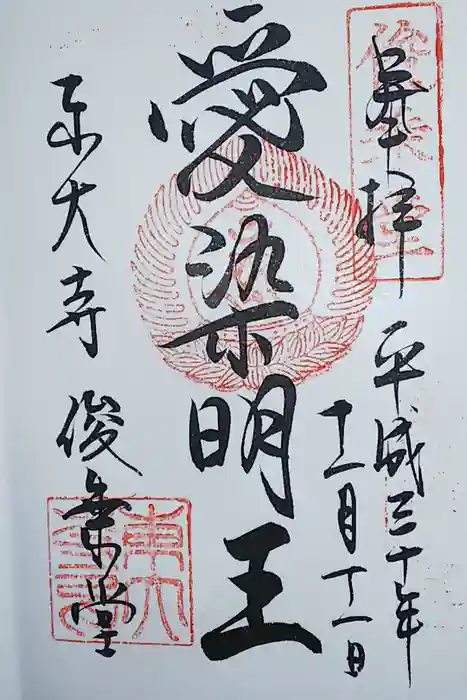 奉拝
平成三十年
十一月十一日
愛染明王
東大寺
俊乗堂